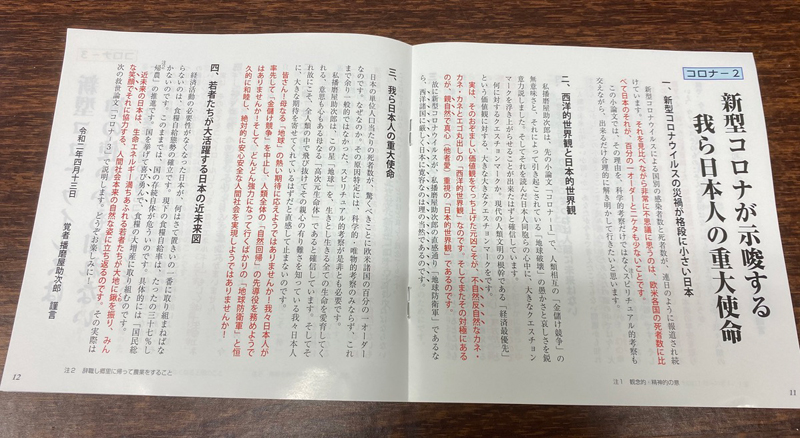 コロナ－2
新型コロナが示唆する
我ら日本人の重大使命
一、新型コロナウイルスの災禍が格段に小さい日本
新型コロナウイルスによる国別の感染者数と死者数が、連日のように報道され続
けています。それを見比べながら非常に不思議に思うのは、欧米各国の死者数に比
べて日本のそれが、百分の一オーダーと二ケタも少ないことです。
この小論文では、その理由を、科学的考察だけではなくスピリチュアル的考察も
交えながら、出来るだけ合理的に解き明かして行きたいと思います。
二、西洋的世界観と日本的世界観
私播磨屋助次郎は、先の小論文「コロナ－1」で、人類相互の「金儲け競争」の
無意味さと、それによって引き起こされている「地球破壊」の愚かさと哀しさを鋭
意力説しました。そしてそれを読んだ日本人同胞らの心中に、大きなクエスチョン
マークを浮き上がらせることが出来たはずと確信しています。
何に対するクエスチョンマークか。現代の人類文明の根幹である「経済最優先」
という価値観に対する、大きな大きなクエスチョンマークをです。
実は、そのおぞましい価値観をでっち上げた元凶こそが、不自然反自然なカネ・
カネ・カネとエゴ丸出しの「西洋的世界観」なのです。そしてその対極にある
のが、親自然で真心（他者愛）重視の「日本的世界観」であるのです。
故に新型コロナウイルスが、私播磨屋助次郎の直感通り「地球防衛軍」であるな
ら、西洋諸国に厳しく日本に寛容なのは理の当然であるのです。
注1　観念的・精神的の意
11
三、我ら日本人の重大使命
日本の単位人口当たりの死者数が、驚くべきことに欧米諸国の百分の一オーダー
なのです。なぜなのか。その原因特定には、科学的・唯物的考察のみならず、これ
まで余り一般的ではなかった、スピリチュアル的考察が是非とも必要です。
私播磨屋助次郎は、この星「地球」を、生きとし生きる全ての生命を愛育してく
れる、意思も心もある母なる「高次元生命体」であると確信しています。そしてそ
れ故にこそ、全人類の中で飛び抜けてその親への有り難さを知っている我々日本人
に、大きな期待を寄せてくれているはずだと直感して止まないのです。
皆さん！母なる「地球」の熱い期待に応えようではありませんか！我々日本人が
率先して「金儲け競争」を中止し、人類全体の「自然回帰」の先導役を務めようで
はありませんか！そして、どんどん強力になって行くばかりの「地球防衛軍」と恒
久的に和睦し、絶対的に安心安全な人間社会を実現しようではありませんか！
四、若者たちが大活躍する日本の近未来図
経済活動の必要性がなくなった日本が、何はさて置きいの一番に取り組まねばな
らないのは、食糧自給態勢の確立です。現下の食糧自給率は、たったの三十七％し
かないのです。このままでは、国の存続自体が危ういのです。具体的には「国民総
帰農」の推進です。国を挙げて喜び勇んで、食糧の大増産に取り組むのです。
近未来の日本は、生命エネルギー満ちあふれる若者たちが大地に鍬を振り、みん
な笑顔でそれに協力する、人間社会本来の自然な姿に立ち返るのです。その実際は
次の救世論文「コロナ－3」で説明します。どうぞお楽しみに！
令和二年四月十三日
覚者 播磨屋助次郎　謹言
注2　辞職し郷里に帰って農業をすること
12